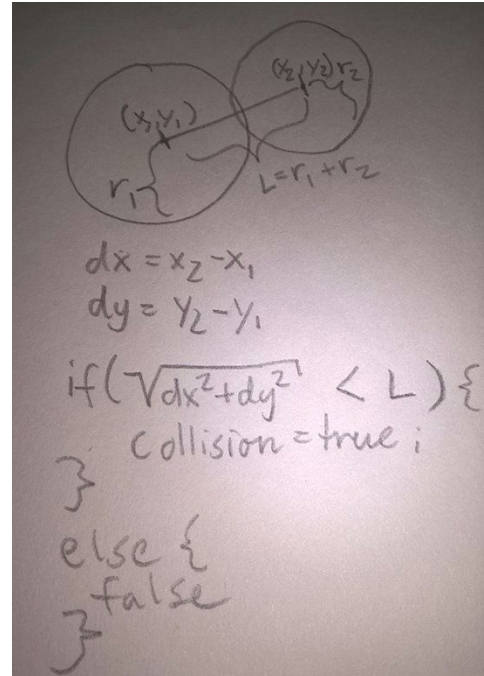 (x₂,y₂) r₂
(x₁,y₁)
r₁
L=r₁+r₂
dx = x₂-x₁
dy = y₂-y₁
if(√dx²+dy² < L){
collision=true;
}
else {
false
}